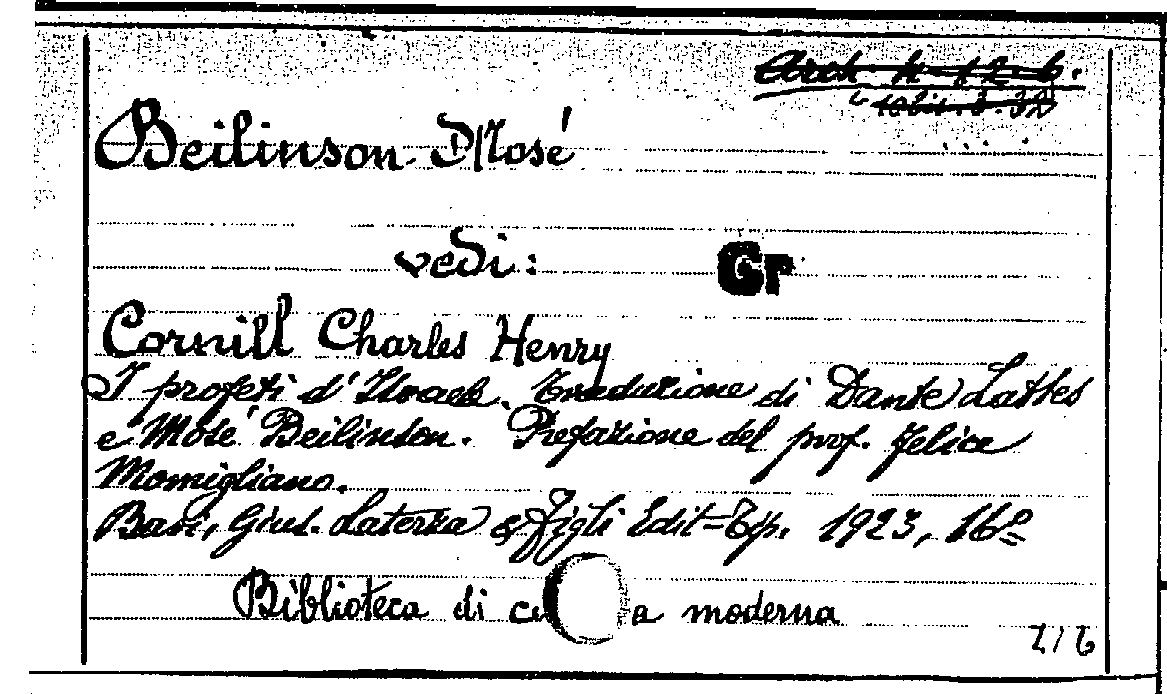 Arch 4-12-6.
Beilinson Mosé
vedi: Gr
Cornill Charles Henry
I profeti d'Israel. Traduzione di Dante Lattes
e Mosé Beilinson. Prefazione del prof. Felice
Momigliano.
Bari, Gius. Laterza & figli Edit=Tip. 1923, 16º
Biblioteca di cu a moderna